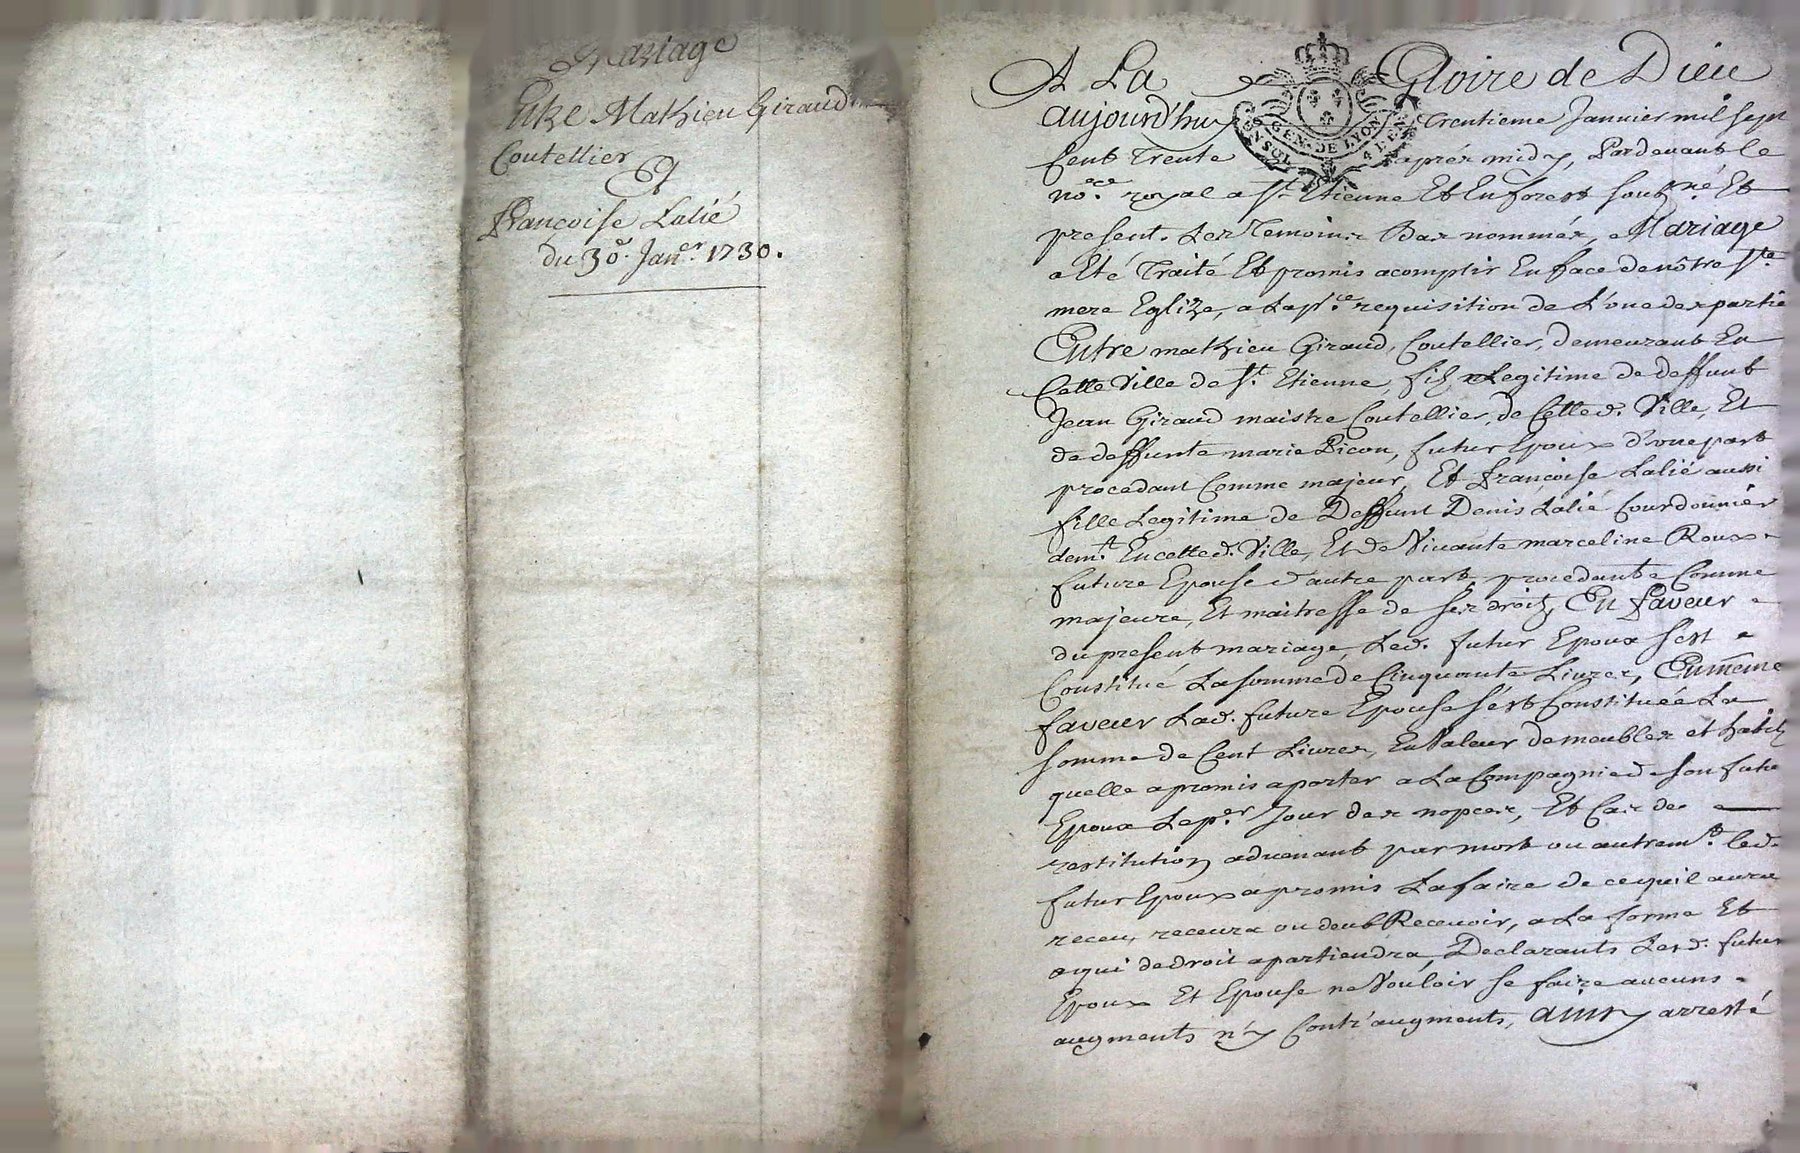 Mariage
Entre Mathieu Giraud
Coutellier
Et
françoise Lalié
du 30e. Janer. 1730.
A La Gloire de Dieu
aujourd'huy Trentieme Janvier mil sept
Cent Trente aprés midy, Pardevant le
nore. royal a St. Etienne Et En forest soubzné. Et
present. Les Temoins Bas nommés, Mariage
a Eté Traité Et promis acomplir En face de nôtre Ste.
mere Eglize, a La pre. requisition de L'une des partie
Entre mathieu Giraud, Coutellier, Demeurant En
Cette Ville de St. Etienne, fils Legitime de deffunt
Jean Giraud maistre Coutellier, de Cetted. Ville, Et
de deffunte marie Picon, futur Epoux d'vne part
procedant Comme majeur, Et françoise Lalié aussi
fille Legitime de Deffunt Denis Lalié Courdonnier
demt. En cetted. Ville, Et de Vivante marceline Roux
future Epouse d'autre part procedante Comme
majeure, Et maitresse de ses droits, En faveur
du present mariage, Led. futur Epoux s'est
Constitué La somme de Cinquante Livres, En même
faveur Lad. future Epouse s'est Constituée La
somme de Cent Livres, En Valeur de meubles et habits
quelle a promis aporter a La Compagnie de son futur
Epoux Le per. Jour des nopces, Et Cas de
restitution advenant par mort ou autremt. led.
futur Epoux a promis La faire de ce quil aura
receu, recevra ou deub Recevoir, a La forme Et
a qui de droit apartiendra, Declarants Lesd. futur
Epoux Et Epouse ne Vouloir se faire aucuns
augments n'y Contr'augments, ainsy arresté